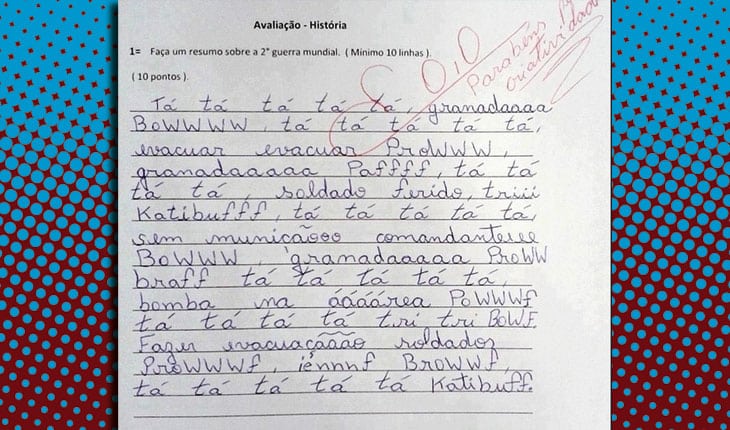 Avaliação - História
1= Faça um resumo sobre a 2° guerra mundial. ( Mínimo 10 linhas ).
( 10 pontos ).
0,0
Parabéns p/
criatividade
Tá tá tá tá tá, granadaaaa
BOWWWW, tá tá tá tá tá,
evacuar evacuar PROWWW,
granadaaaaa Paffff, tá tá
tá tá, soldado ferido, triii
Katibufff, tá tá tá tá tá,
sem muniçãooo comandanteeee
BOWWW, granadaaaaa PROWW
braff tá tá tá tá tá,
bomba na áááárea POWWWf
tá tá tá tá tri tri BOWF.
Fazer evacuaçãããão soldados
PROWWWf, iénnnf BROWWf,
tá tá tá tá tá Katibuff.